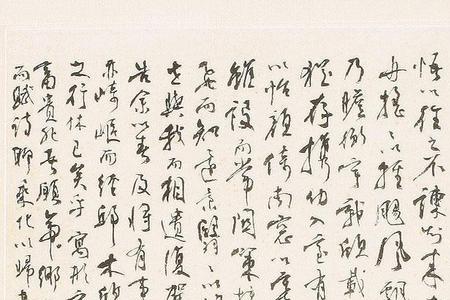 悟以往之不諫知来
舟搖々以輕颺風飄
乃瞻衡宇載欣載
猶存攜幼入室有
以怡顏倚南窓以寄
雖設而常関策扶
飛而知還景翳々以
世與我而相遺復駕
告余以春及将有事
亦崎嶇而經邱木欣
之行休已矣乎寓形宇
富貴非吾願帝鄉
而賦詩聊乘化以歸